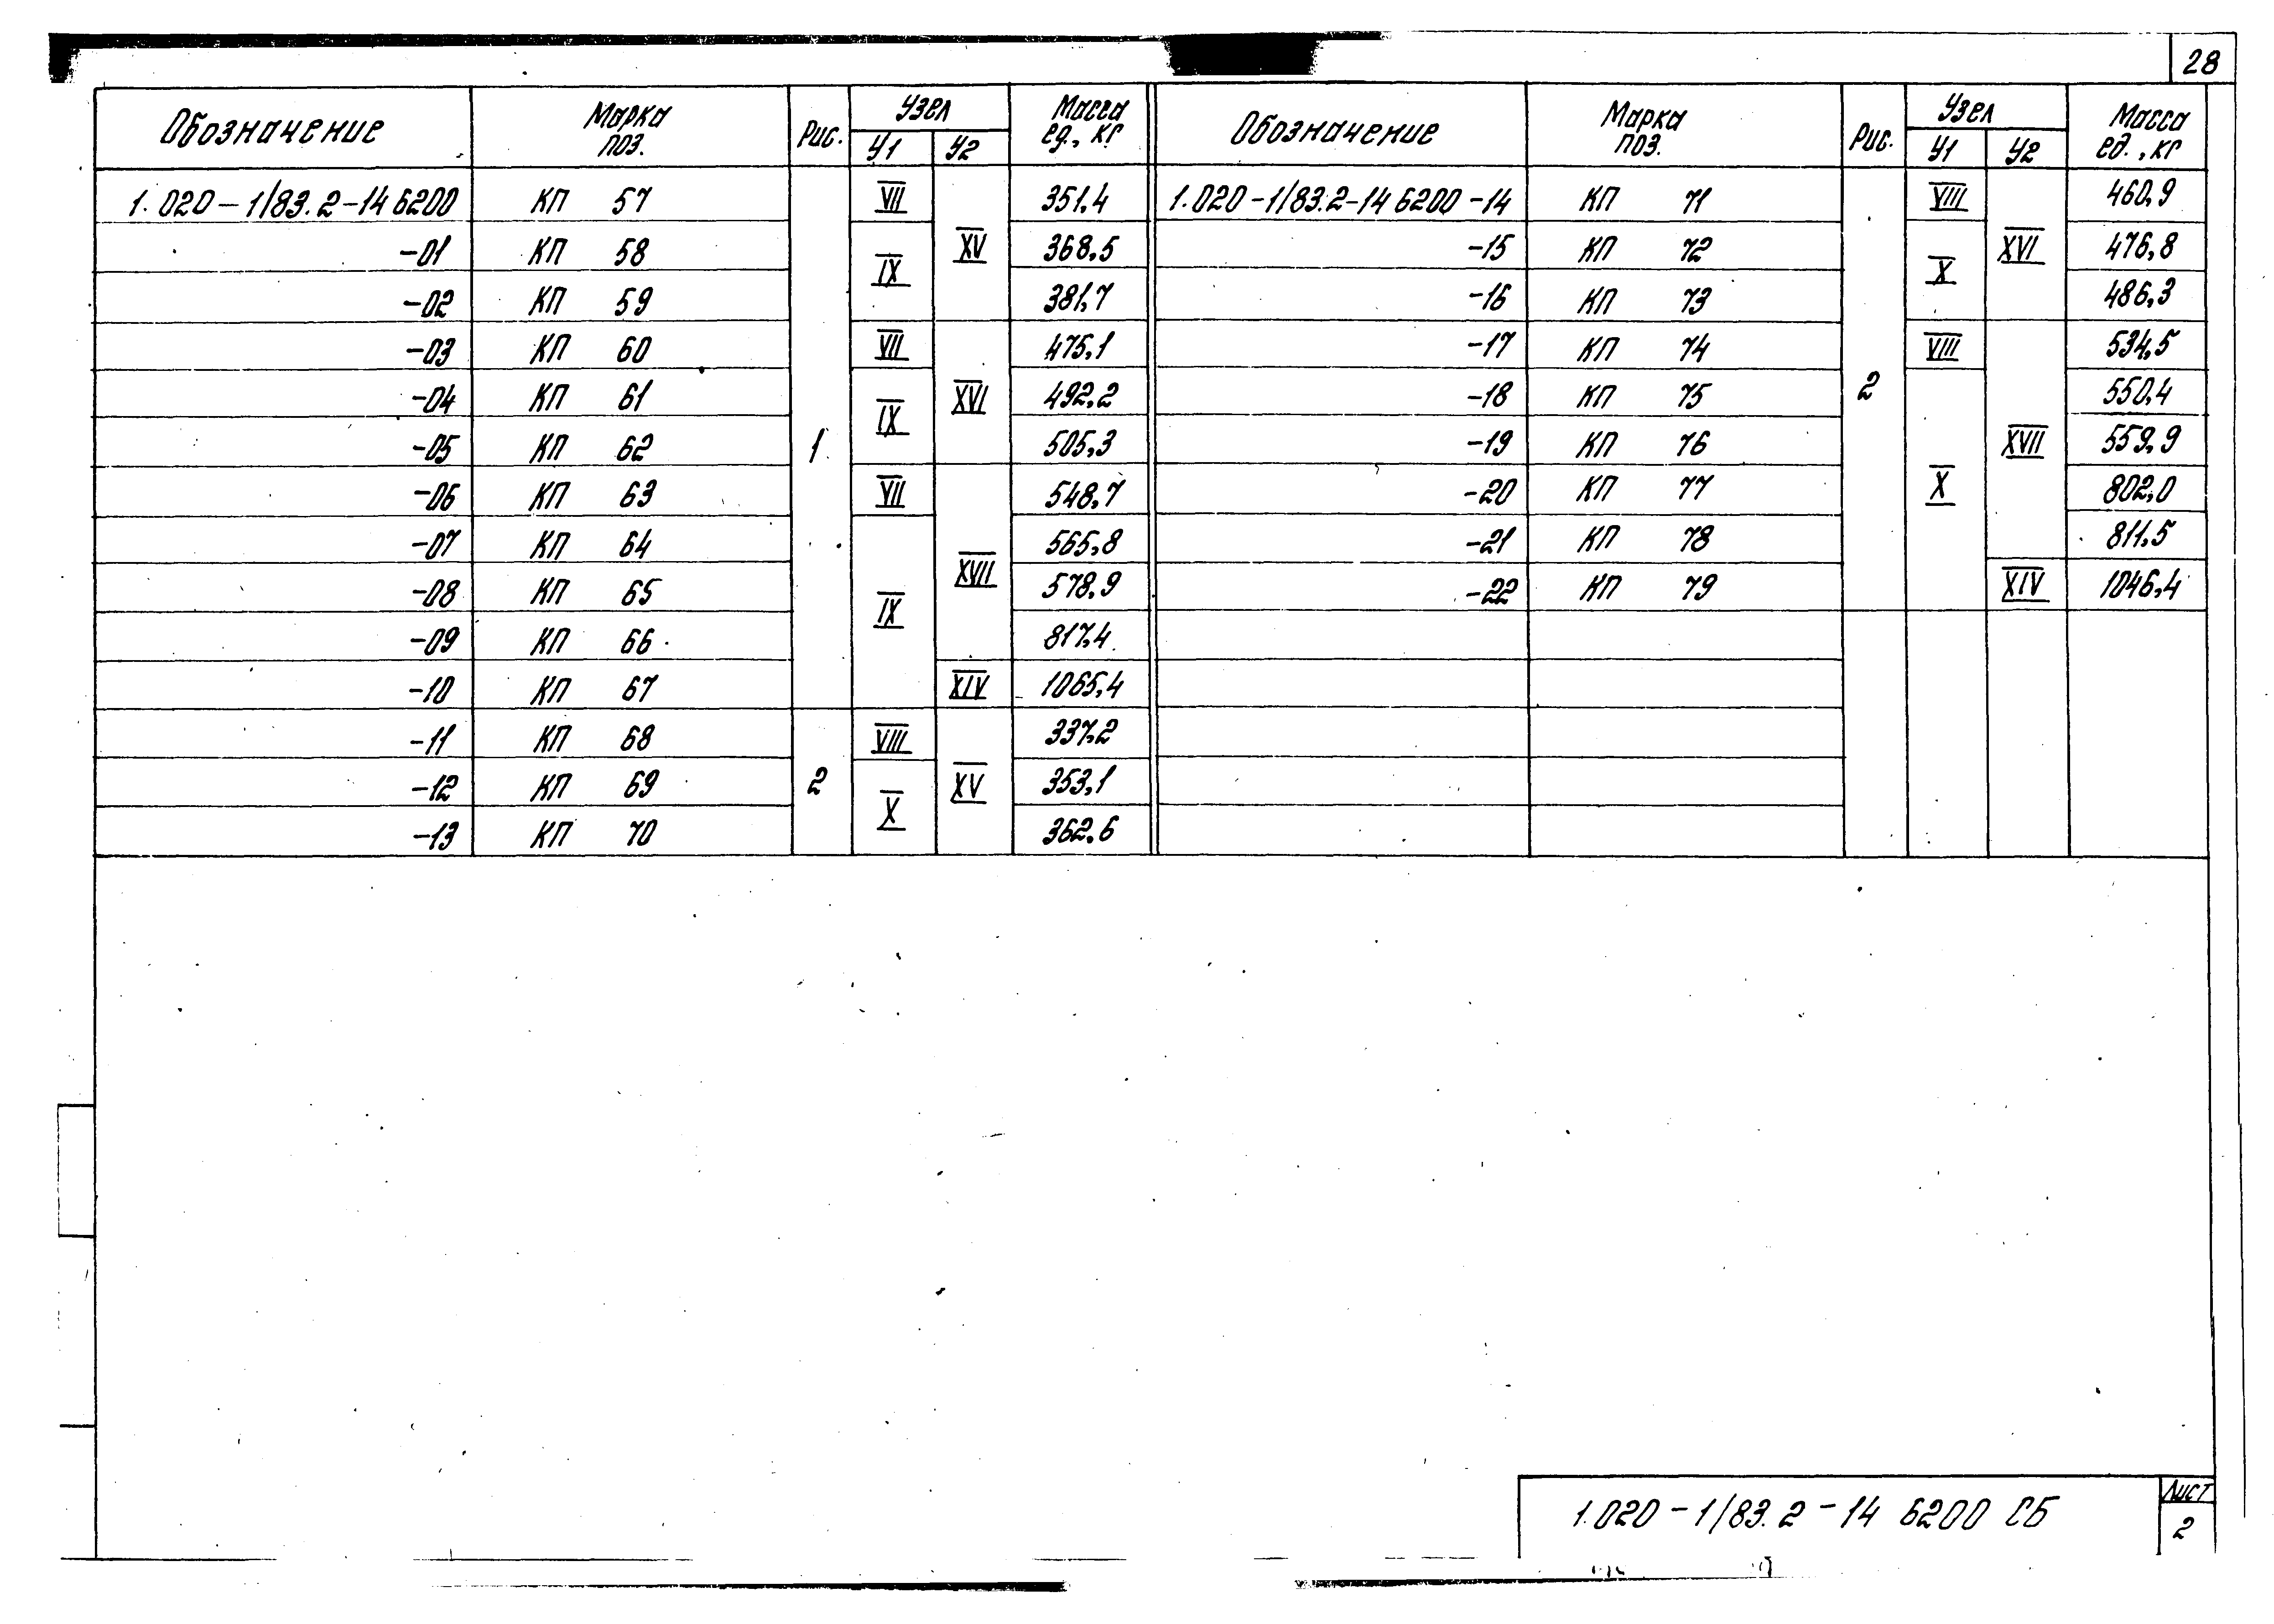 28
Обозначение Марка поз. Рис. Узел У1 У2 Масса ед., кг Обозначение Марка поз. Рис. Узел У1 У2 Масса ед., кг
1.020-1/83.2-14 6200 КП 57 VII 351,4 1.020-1/83.2-14 6200-14 КП 71 VIII 460,9
-01 КП 58 IX XV 368,5 -15 КП 72 X XVI 476,8
-02 КП 59 381,7 -16 КП 73 486,3
-03 КП 60 VII 475,1 -17 КП 74 VIII 534,5
-04 КП 61 IX XVI 492,2 -18 КП 75 2 550,4
-05 КП 62 1 505,3 -19 КП 76 XVII 559,9
-06 КП 63 VII 548,7 -20 КП 77 X 802,0
-07 КП 64 XVII 565,8 -21 КП 78 811,5
-08 КП 65 IX 578,9 -22 КП 79 XIV 1046,4
-09 КП 66 817,4
-10 КП 67 XIV 1065,4
-11 КП 68 VIII 337,2
-12 КП 69 2 XV 353,1
-13 КП 70 X 362,6
1.020-1/83.2-14 6200 СБ
Лист
2